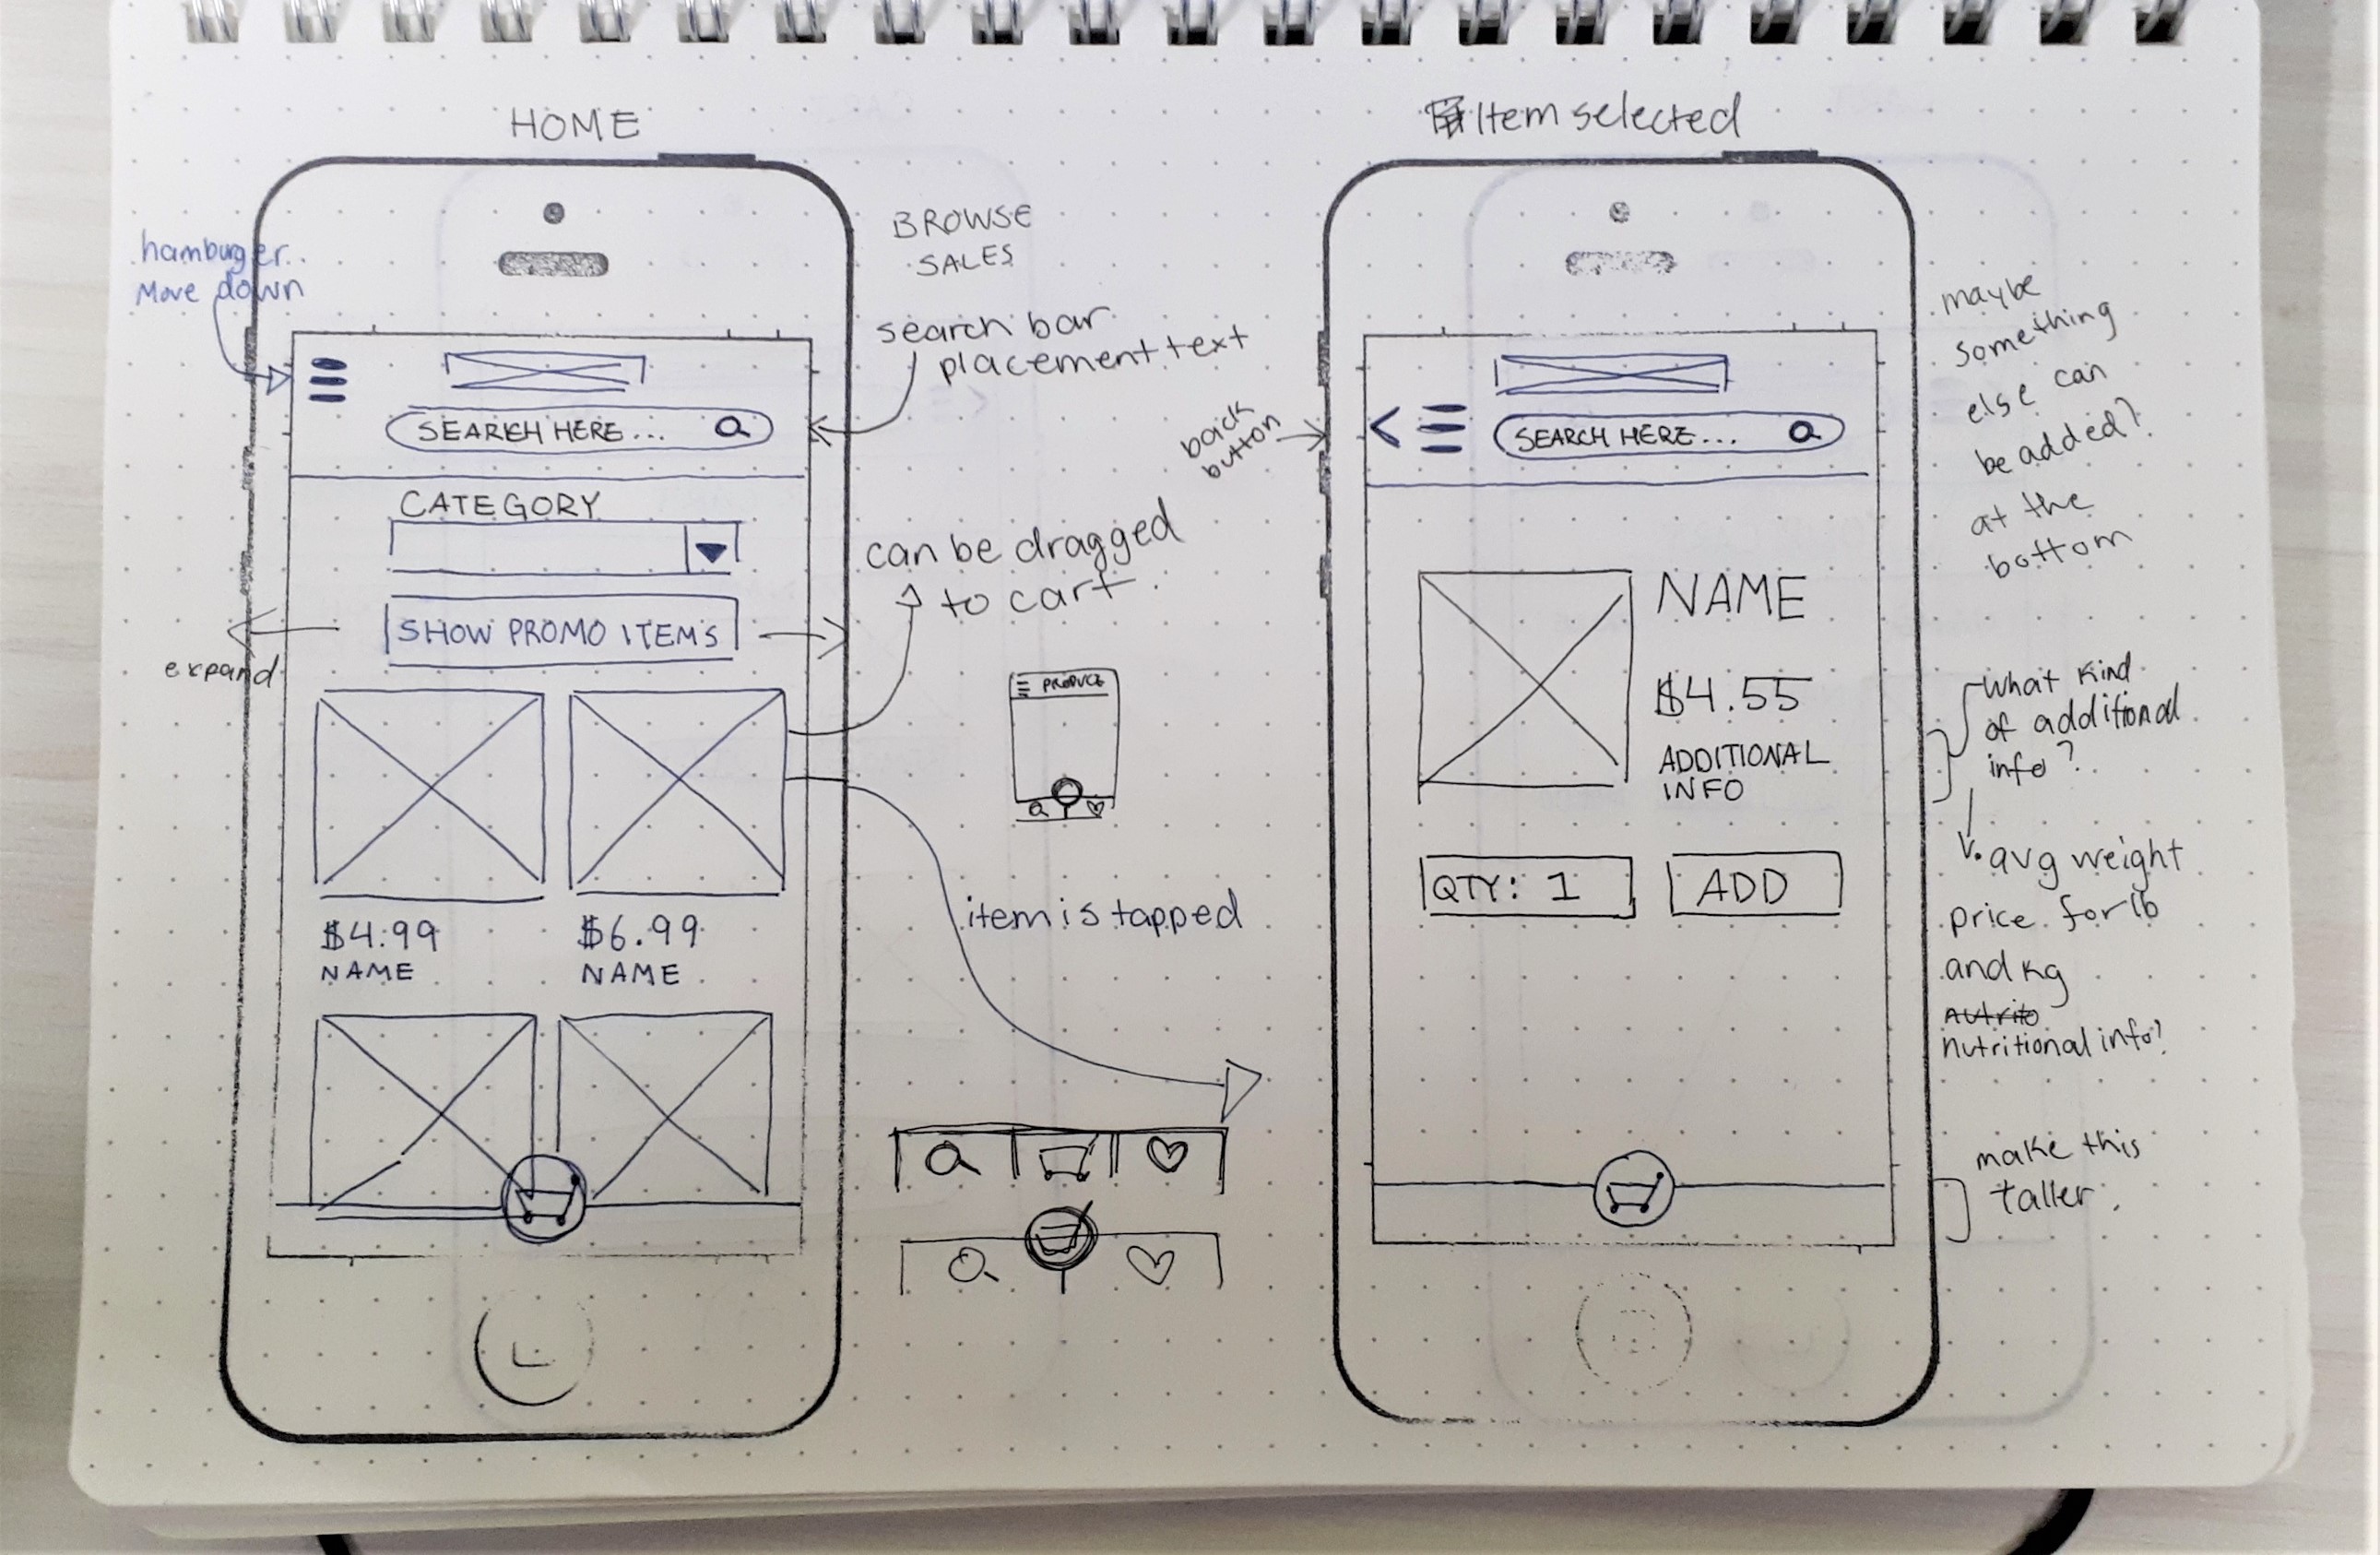 HOME
hamburger
Move down
SEARCH HERE...
CATEGORY
SHOW PROMO ITEMS
expand
$4.99
NAME
$6.99
NAME
BROWSE
SALES
search bar
placement text
can be dragged
to cart.
PRODUCE
item is tapped
Item selected
back
button
SEARCH HERE...
NAME
$4.55
ADDITIONAL
INFO
QTY: 1
ADD
maybe
something
else can
be added?
at the
bottom
What kind
of additional
info?
• avg weight
price for lb
and kg
nutritio
nutritional info?
make this
taller.